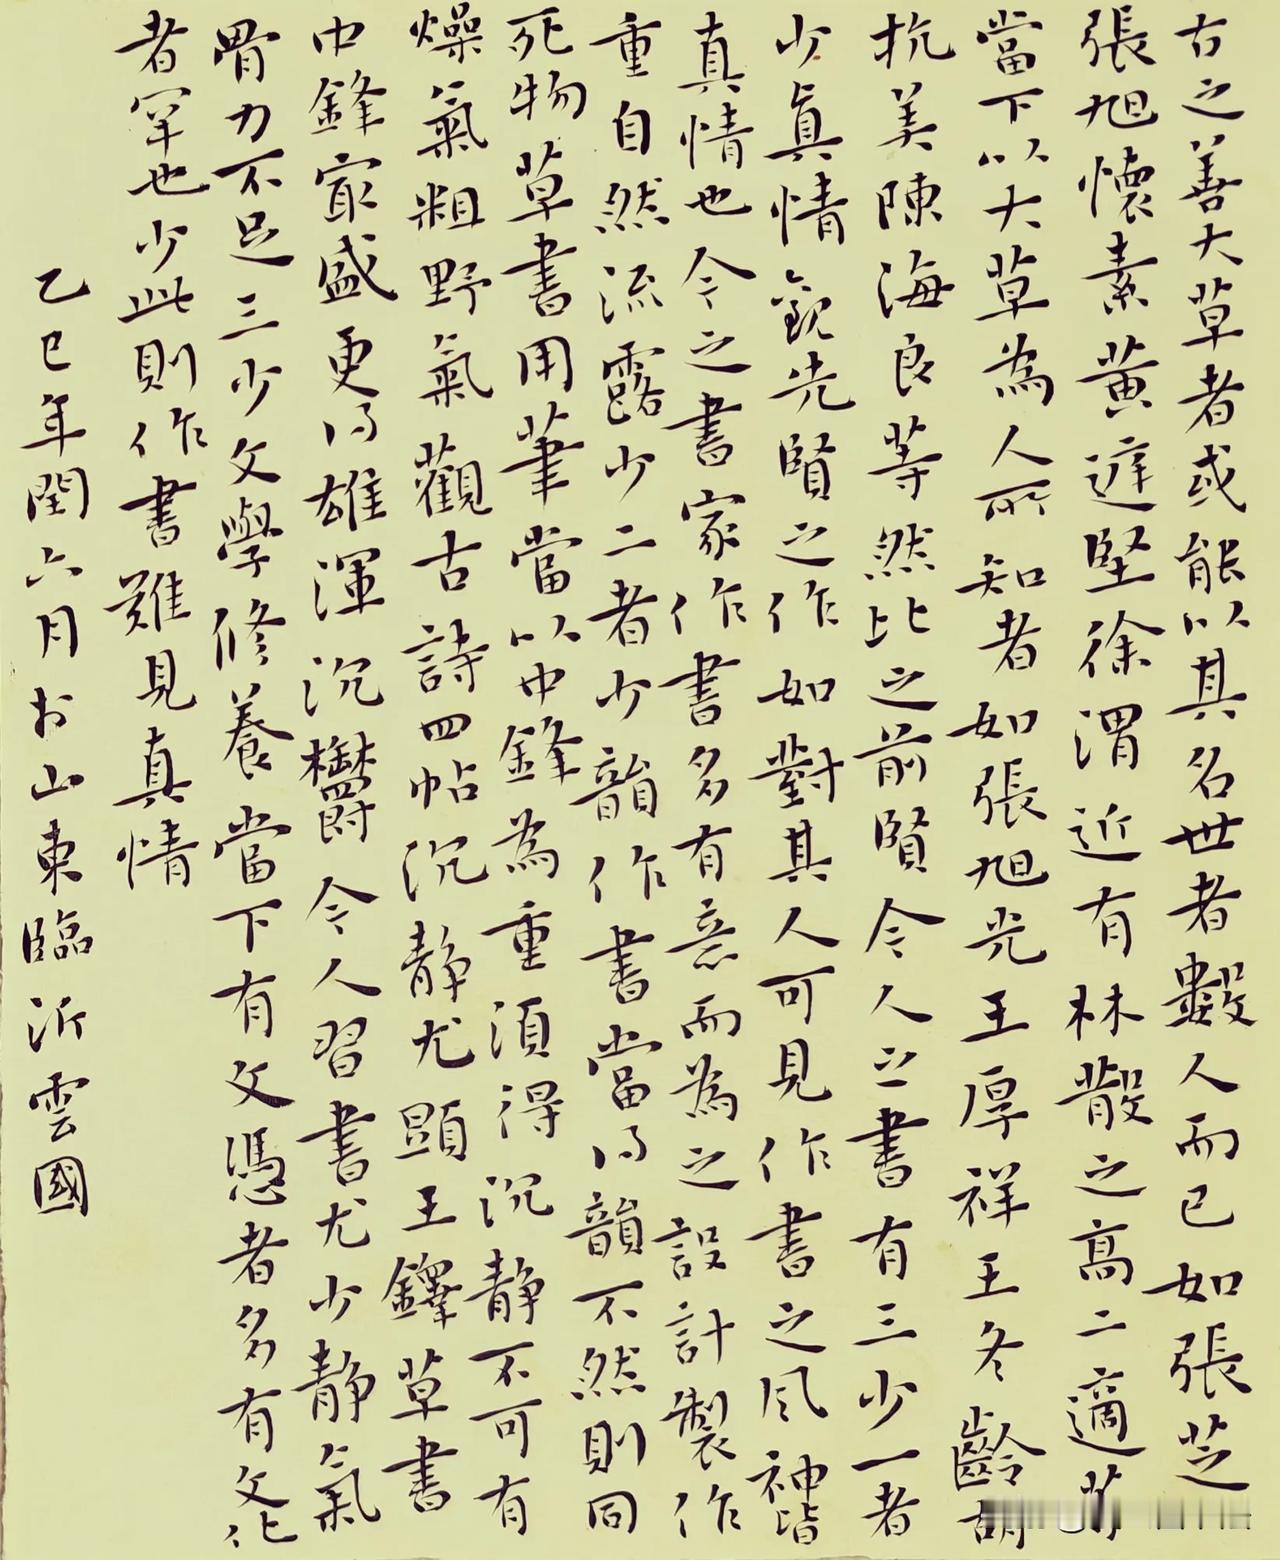 古之善大草者或能以其名世者數人而已如張芝
張旭懷素黄庭堅徐渭近有林散之高二適等
當下以大草為人所知者如張旭光王厚祥王冬齡胡
抗美陳海良等然比之前賢今人之書有三少一者
少真情觀先賢之作如對其人可見作書之风神皆
真情也今之書家作書多有意而為之設計製作
重自然流露少二者少韻作書當得韻不然則同
死物草書用筆當以中鋒為重須得沉静不可有
燥氣粗野氣觀古詩四帖沉静尤顯王鐸草書
中鋒寂盛更得雄渾沉欝今人習書尤少静氣
骨力不足三少文學修養當下有文憑者多有文化
者罕也少此則作書難見真情
乙巳年閏六月於山東臨沂雲國